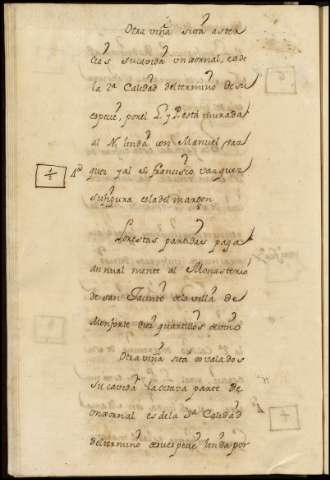 Otra viña sita as tea
ceas su cavida un xornal, es de
la 2ª Calidad del termino de su
especie, por el L. y P. está murada
al N. linda con Manuel Vaz
4 4ª quez y al es. francisco, vazquez
su figura es la del margen
Por estas partidas paga
anual mente al Monasterio
de san Jacinto de la villa de
Monforte dos quartillos de vino
Otra viña sita os valados
su cavida la octava parte de
un xornal es de la 2ª Calidad
del termino de su especie linda por